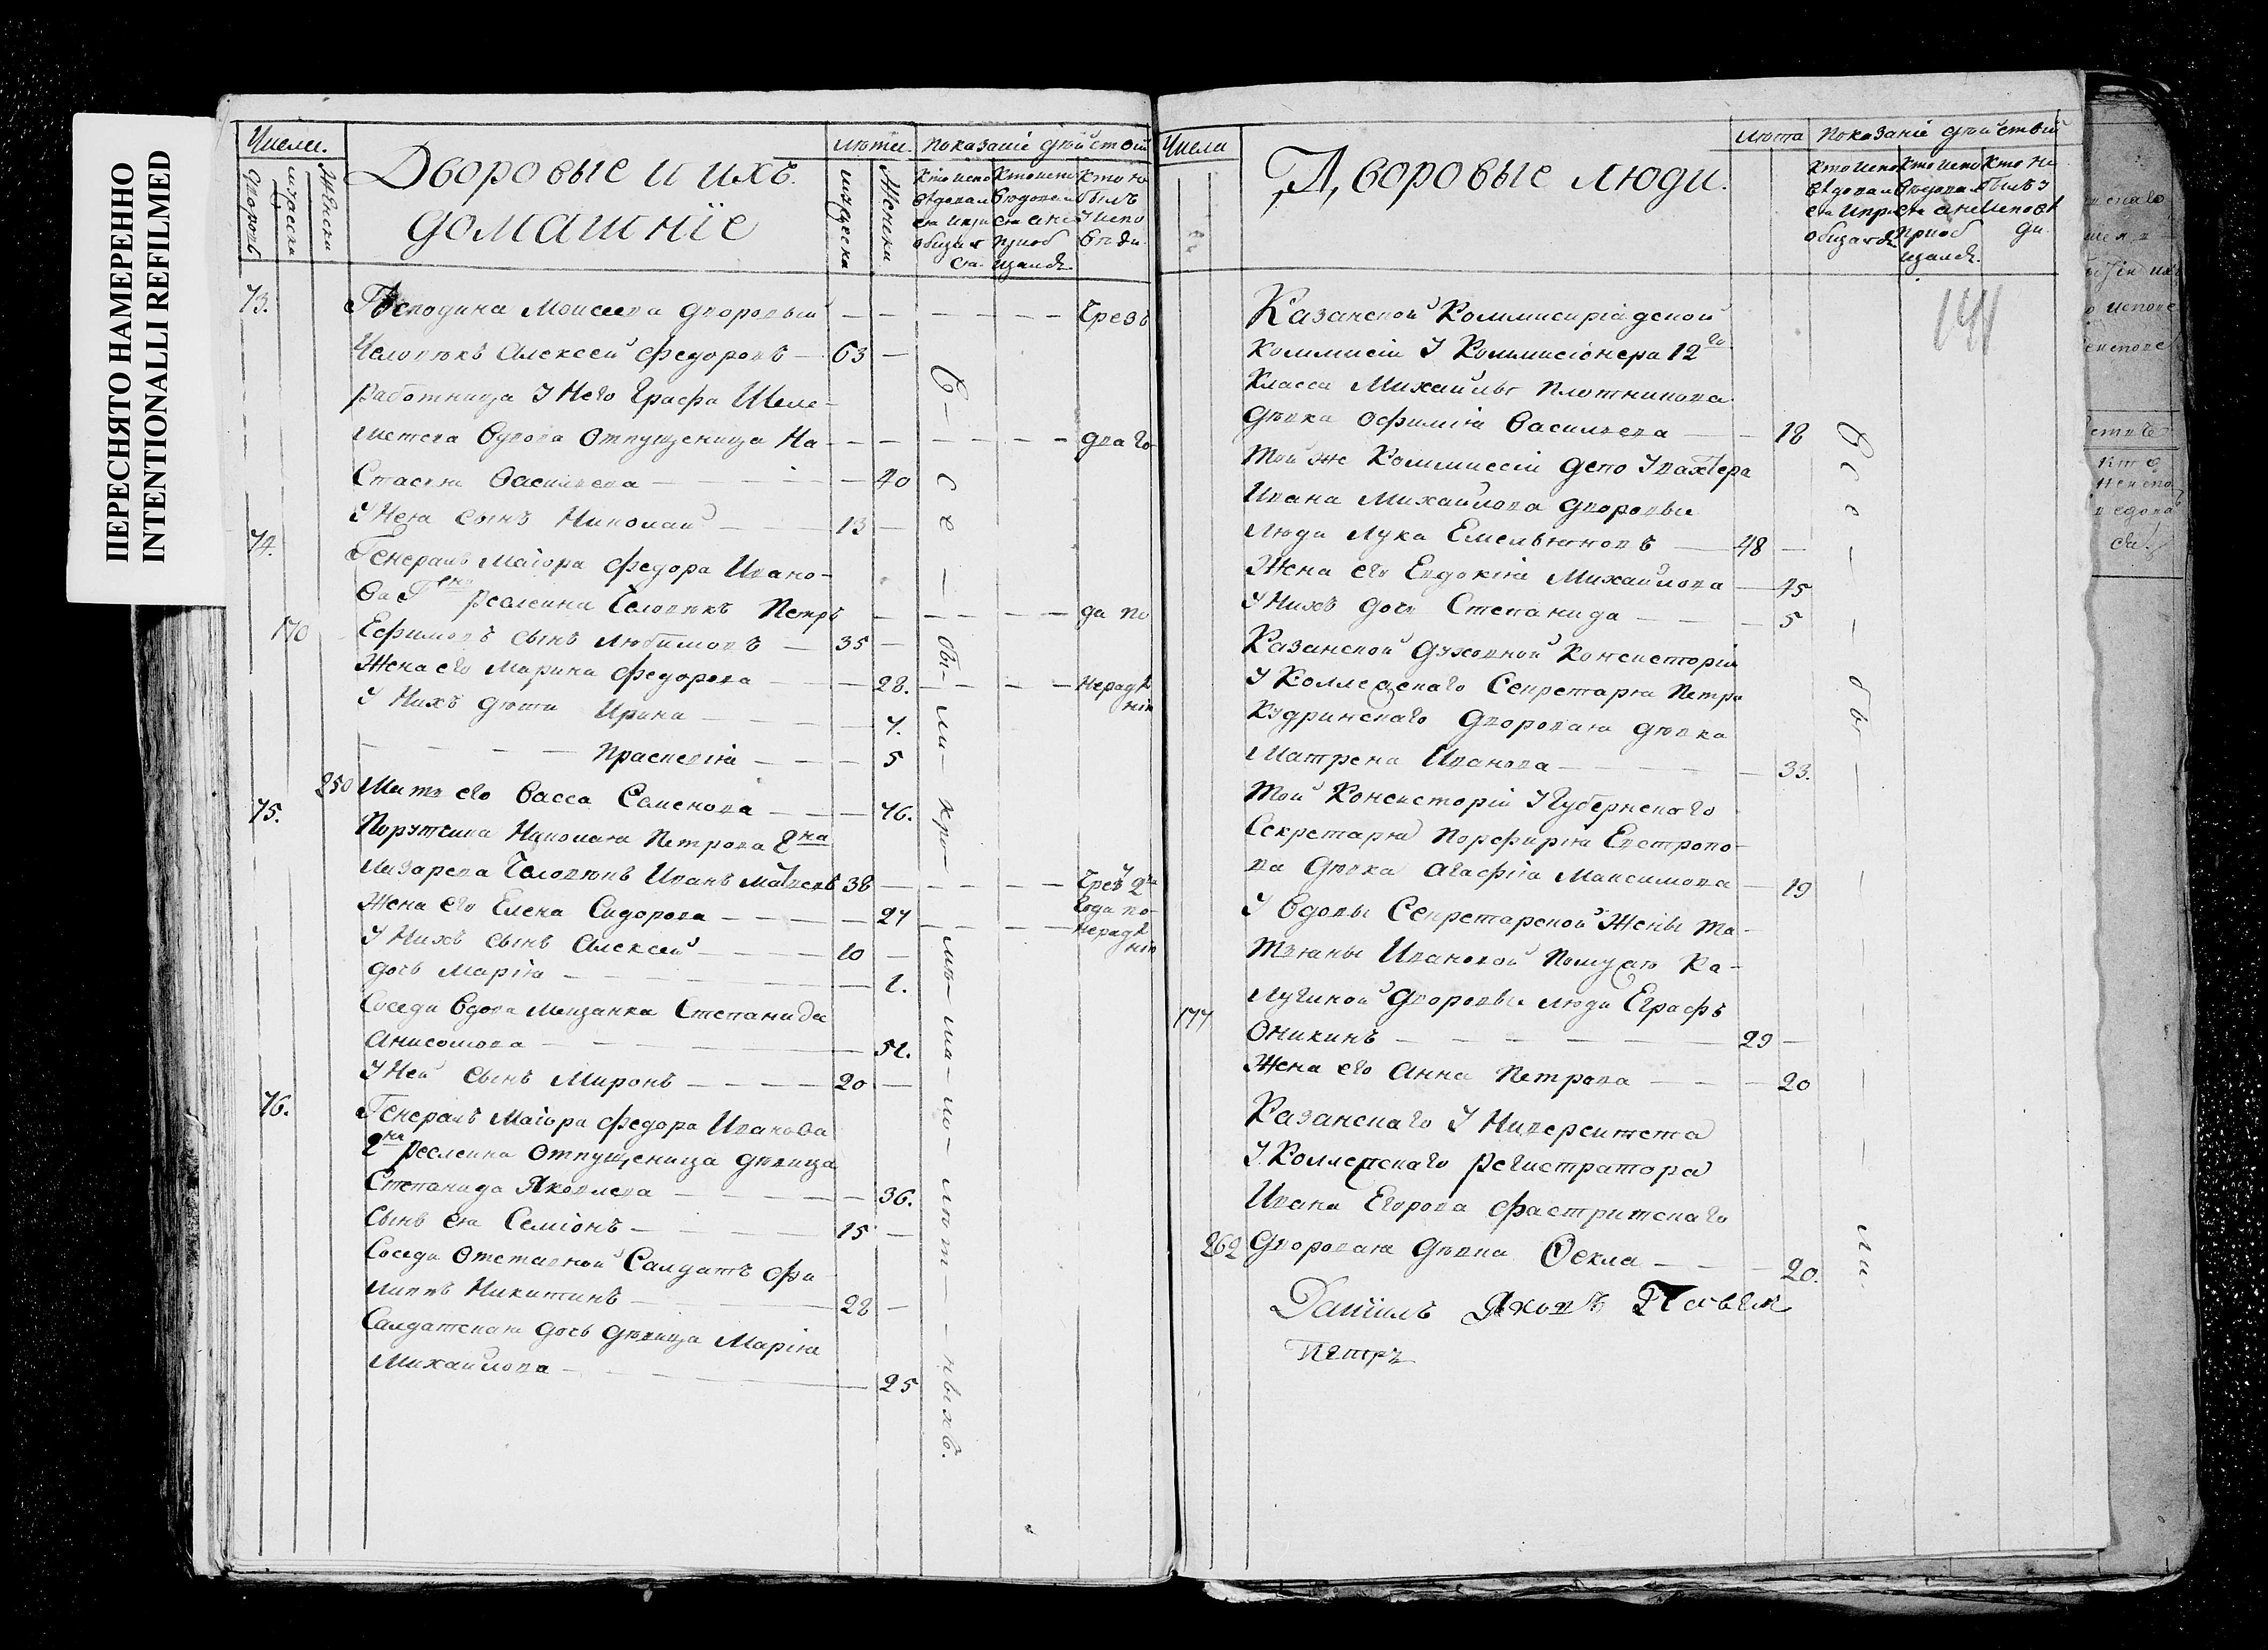 ПЕРЕСНЯТО НАМЕРЕННО
INTENTIONALLI REFILMED
Числа.
Дворовыхъ
мужеска
женски
Дворовые и ихъ
домашніе
лѣта.
мужеска
женски
показаніе дѣйствій
73.
Господина Моисеева дворовый
Чрезъ
Человѣкъ Алексей Федоровъ 63
Работница У Него Графа Шеле-
метева Вдова Отпущеница На-
два го
стасья Васильева 40
У Нея сынъ Николай 13
74.
Генералъ Маіора Федора Ивано-
Человѣкъ Петръ
да по
170
Ефимовъ сынъ Любимовъ 35
Жена его Марина Федорова 28.
нерадѣ
нію
У Нихъ дѣти Ирина 7.
Праскевія 5
250 Мать его Васса Саменова 76.
75.
Порутчика Николая Петрова 2на
Лазарева Человѣкъ Иванъ Матвеевъ 38
Жена Его Елена Сидорова 27
года по
нерадѣ
нію
У Нихъ сынъ Алексей 10
дочь Марія 1.
Соседи Вдова мещанка Степанида
Анисомова 51.
У Ней сынъ Миронъ 20
76.
Генералъ Маіора Федора Иванова
2на Реслеина Отпущеница дѣвица
Степанида Яковлева 36.
Сынъ ея Семіонъ 15
Соседи Отставной Салдатъ Фи
липъ Никитинъ 28
Салдатская дочь дѣвица Марія
Михайлова 25
Всѣ были кромѣ малолѣтныхъ.
Числа
Дворовые люди.
лѣта
показаніе дѣйствій
141
Казанской Коммисиріадской
Коммисіи У Коммисіонера 12го
Класса Михаилы Плотникова
дѣвка Офимія Васильева 18
Той же Коммиссіи депо У вахтера
Ивана Михайлова дворовыи
Люди Лука Емельяновъ 48
Жена его Евдокія Михайлова 45
У Нихъ дочь Степанида 5
Казанской Духовной Консисторіи
У Коллежскаго Секретаря Петра
Кудринскаго Дворовая дѣвка
Матрена Иванова 33.
Той Консисторіи У Губернскаго
Секретаря Порфирія Евстропо-
ва Дѣвка Агафія Максимова 19
У Вдовы Секретарской Жены Та-
тьяны Ивановой Ка-
лугиной Дворовыи люди Еграфъ
177
Оникинъ 29
Жена его Анна Петрова 20
Казанскаго Университета
У Коллежскаго Регистратора
Ивана Егорова Фастритскаго
262 Дворовая Дѣвка Ѳекла 20.
Всѣ были
Даніилъ Яковъ Павелъ
Петръ